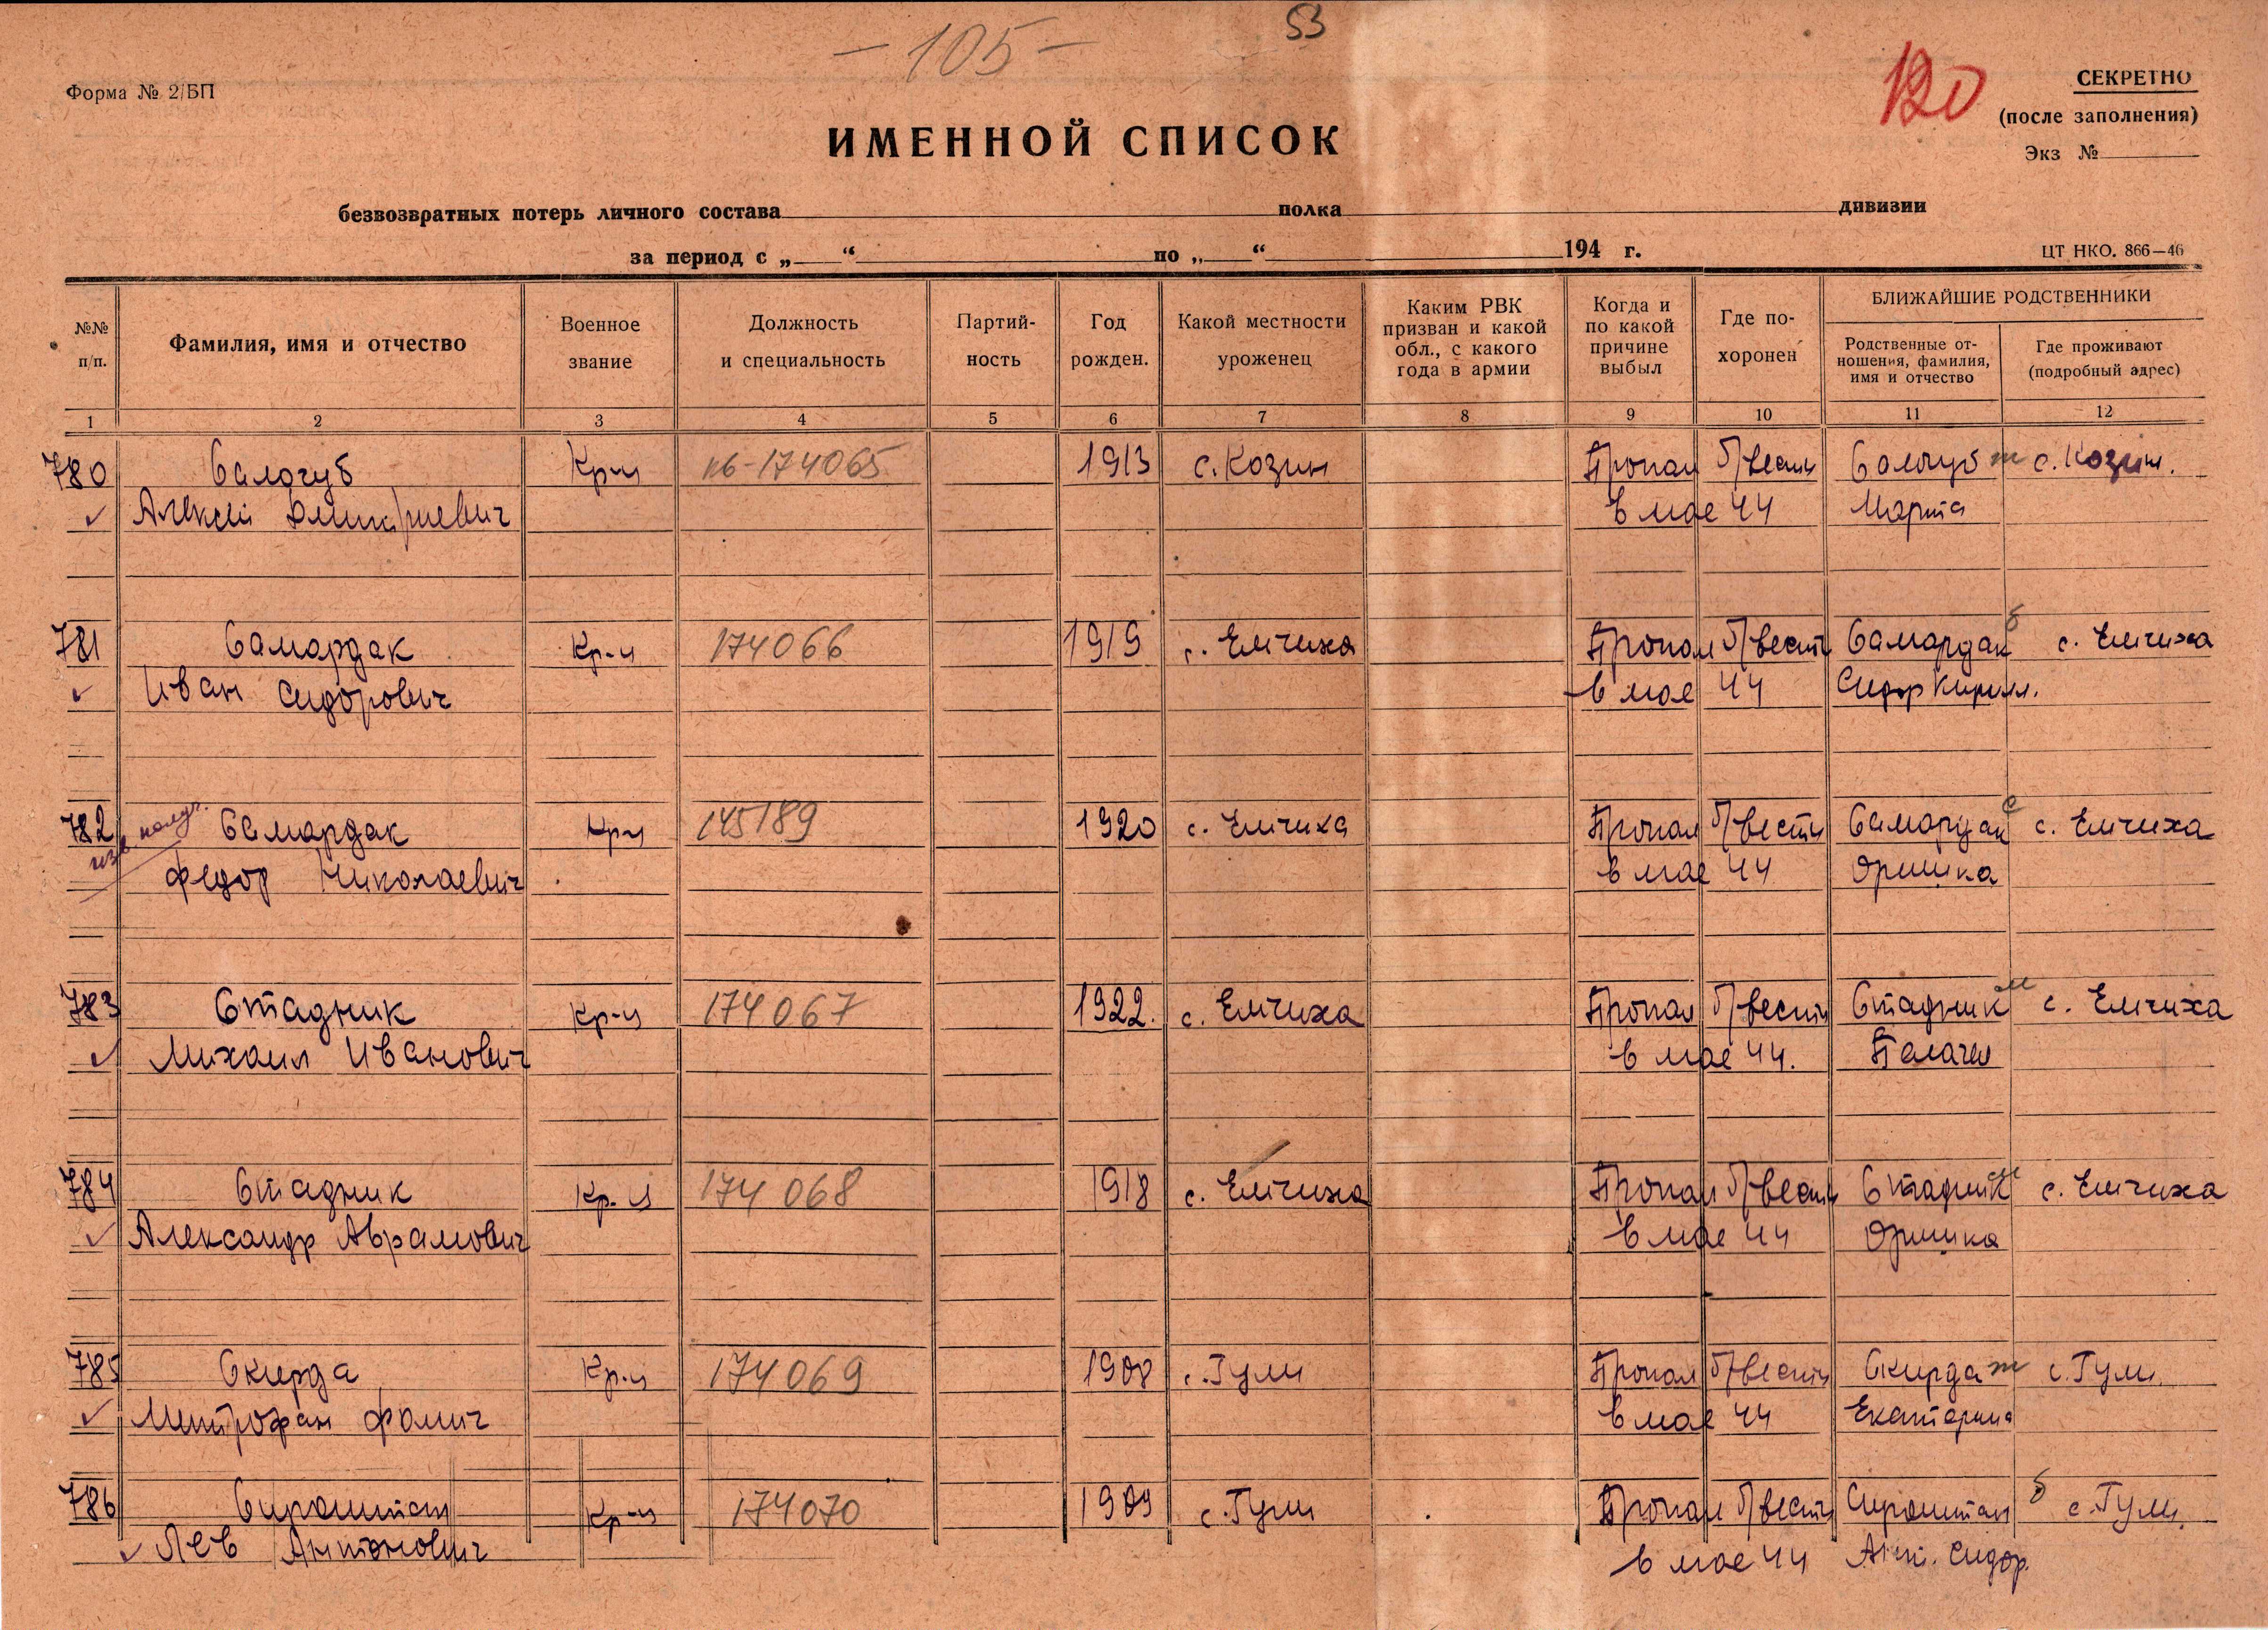 - 105 -
53
120
Форма № 2/БП
СЕКРЕТНО
(после заполнения)
Экз №
ИМЕННОЙ СПИСОК
безвозвратных потерь личного состава полка дивизии
за период с „ “ по „ “ 194 г.
ЦТ НКО. 866—46
№№ п/п.
Фамилия, имя и отчество
Военное звание
Должность и специальность
Партий-ность
Год рожден.
Какой местности уроженец
Каким РВК призван и какой обл., с какого года в армии
Когда и по какой причине выбыл
Где по-хоронен
БЛИЖАЙШИЕ РОДСТВЕННИКИ
Родственные от-ношения, фамилия, имя и отчество
Где проживают (подробный адрес)
1 2 3 4 5 6 7 8 9 10 11 12
780 Салогуб Кр-ц пб-174065 1913 с. Козин Пропал б/вести Салогуб ж с. Козин.
Алексей Дмитриевич в мае 44 Марта
781 Самардак Кр-ц 174066 1919 с. Емчиха Пропал б/вести Самардак б с. Емчиха
Иван Сидорович в мае 44 Сидор Кирилл.
782 Самардак Кр-ц 145189 1920 с. Емчиха Пропал б/вести Самардак с с. Емчиха
Федор Николаевич в мае 44 Оришка
783 Стадник Кр-ц 174067 1922. с. Емчиха Пропал б/вести Стадник м с. Емчиха
Михаил Иванович в мае 44. Палагея
784 Стадник Кр-ц 174068 1918 с. Емчиха Пропал б/вести Стадник с. Емчиха
Александр Аврамович в мае 44 Оришка
785 Скирда Кр-ц 174069 1908 с. Гули Пропал б/вести Скирда ж с. Гули
Митрофан Фомич в мае 44 Екатерина
786 Сироштан Кр-ц 174070 1909 с. Гули Пропал б/вести Сироштан б с. Гули
Лев Антонович в мае 44 Ант. Сидор.